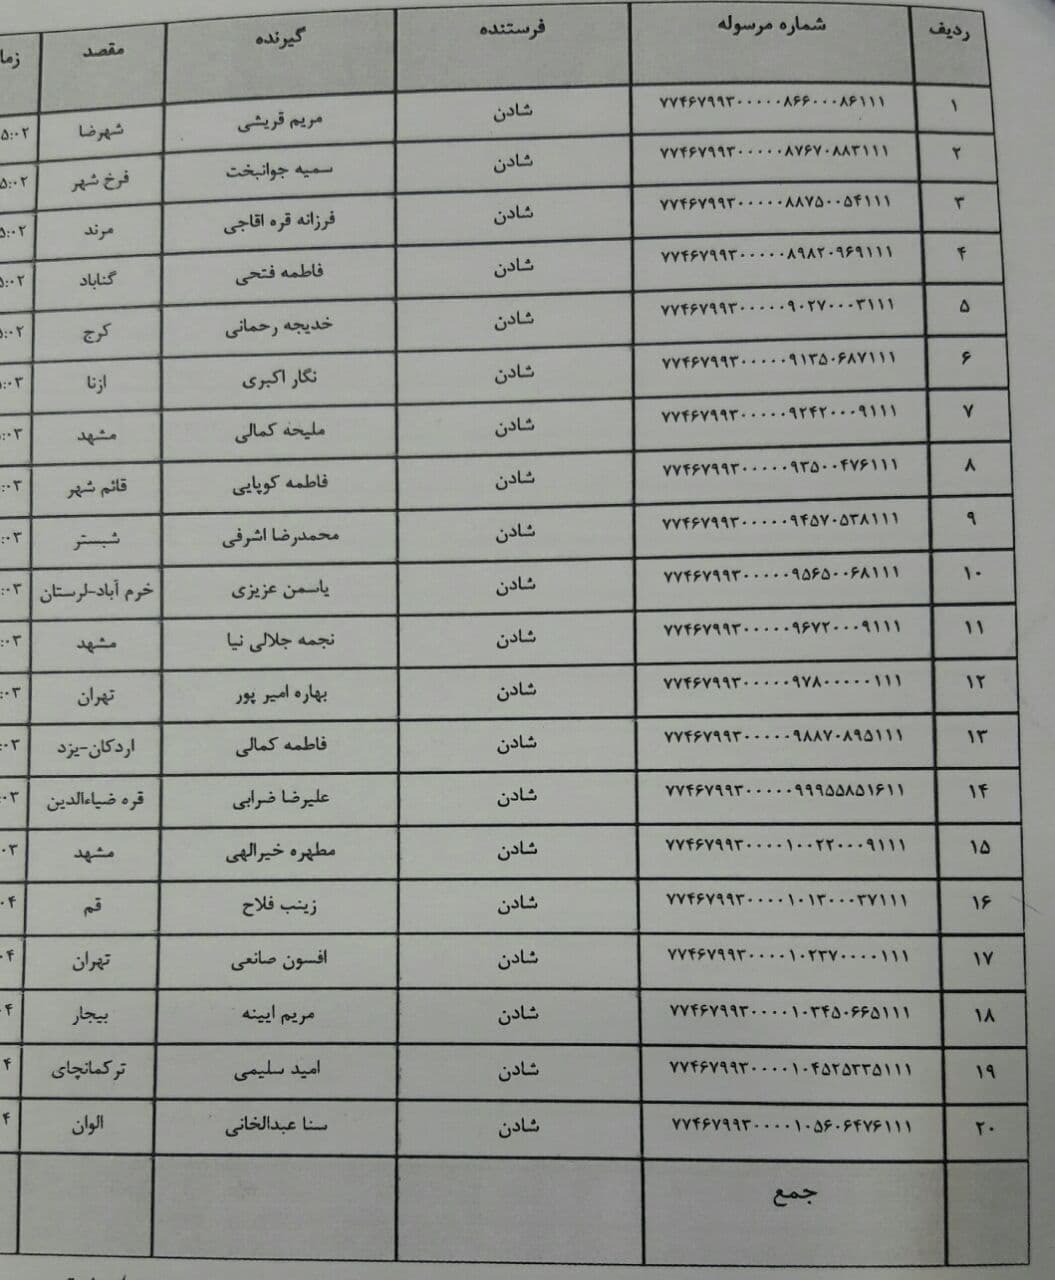 ردیف شماره مرسوله فرستنده گیرنده مقصد
۱ ۷۷۴۶۷۹۹۳۰۰۰۰۰۸۶۶۰۰۰۸۶۱۱۱ شادن مریم قریشی شهرضا
۲ ۷۷۴۶۷۹۹۳۰۰۰۰۰۸۷۶۷۰۸۸۳۱۱۱ شادن سمیه جوانبخت فرخ شهر
۳ ۷۷۴۶۷۹۹۳۰۰۰۰۰۸۸۷۵۰۰۵۴۱۱۱ شادن فرزانه قره اقاجی مرند
۴ ۷۷۴۶۷۹۹۳۰۰۰۰۰۸۹۸۲۰۹۶۹۱۱۱ شادن فاطمه فتحی گناباد
۵ ۷۷۴۶۷۹۹۳۰۰۰۰۰۹۰۲۷۰۰۰۳۱۱۱ شادن خدیجه رحمانی کرج
۶ ۷۷۴۶۷۹۹۳۰۰۰۰۰۹۱۳۵۰۶۸۷۱۱۱ شادن نگار اکبری ازنا
۷ ۷۷۴۶۷۹۹۳۰۰۰۰۰۹۲۴۲۰۰۰۹۱۱۱ شادن ملیحه کمالی مشهد
۸ ۷۷۴۶۷۹۹۳۰۰۰۰۰۹۳۵۰۰۴۷۶۱۱۱ شادن فاطمه کوپایی قائم شهر
۹ ۷۷۴۶۷۹۹۳۰۰۰۰۰۹۴۵۷۰۵۳۸۱۱۱ شادن محمدرضا اشرفی شبستر
۱۰ ۷۷۴۶۷۹۹۳۰۰۰۰۰۹۵۶۵۰۰۶۸۱۱۱ شادن یاسمن عزیزی خرم آباد-لرستان
۱۱ ۷۷۴۶۷۹۹۳۰۰۰۰۰۹۶۷۲۰۰۰۹۱۱۱ شادن نجمه جلالی نیا مشهد
۱۲ ۷۷۴۶۷۹۹۳۰۰۰۰۰۹۷۸۰۰۰۰۰۱۱۱ شادن بهاره امیر پور تهران
۱۳ ۷۷۴۶۷۹۹۳۰۰۰۰۰۹۸۸۷۰۸۹۵۱۱۱ شادن فاطمه کمالی اردکان-یزد
۱۴ ۷۷۴۶۷۹۹۳۰۰۰۰۰۹۹۹۵۵۸۵۱۶۱۱ شادن علیرضا ضرابی قره ضیاءالدین
۱۵ ۷۷۴۶۷۹۹۳۰۰۰۰۱۰۰۲۲۰۰۰۹۱۱۱ شادن مطهره خیرالهی مشهد
۱۶ ۷۷۴۶۷۹۹۳۰۰۰۰۱۰۱۳۰۰۰۳۷۱۱۱ شادن زینب فلاح قم
۱۷ ۷۷۴۶۷۹۹۳۰۰۰۰۱۰۲۳۷۰۰۰۰۱۱۱ شادن افسون صانعی تهران
۱۸ ۷۷۴۶۷۹۹۳۰۰۰۰۱۰۳۴۵۰۶۶۵۱۱۱ شادن مریم ایینه بیجار
۱۹ ۷۷۴۶۷۹۹۳۰۰۰۰۱۰۴۵۲۵۳۳۵۱۱۱ شادن امید سلیمی ترکمانچای
۲۰ ۷۷۴۶۷۹۹۳۰۰۰۰۱۰۵۶۰۶۴۷۶۱۱۱ شادن سنا عبدالخانی الوان
جمع